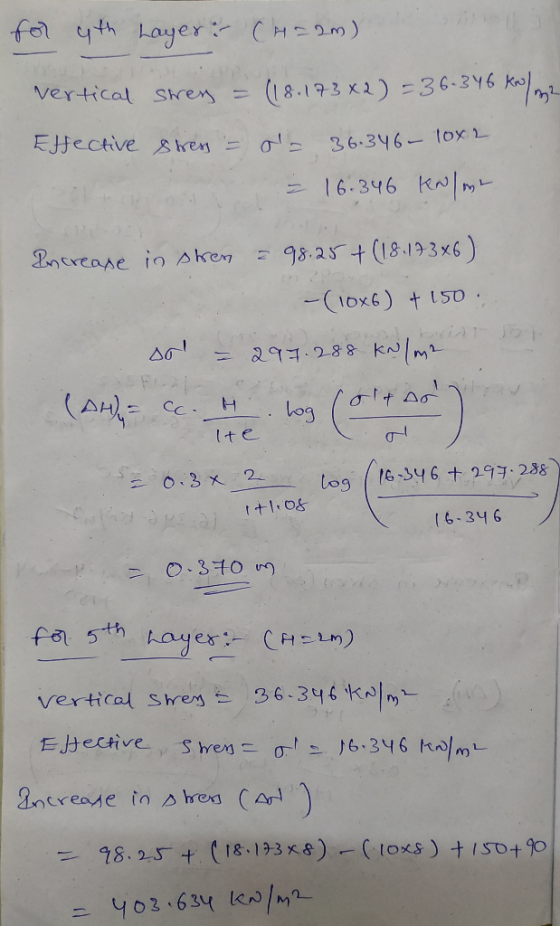 for 4th Layer:- (H=2m)
Vertical stress = (18.173×2) = 36.346 KN/m²
Effective stress = σ' = 36.346 - 10×2
= 16.346 KN/m²
Increase in stress = 98.25 + (18.173×6)
-(10×6) + 150.
Δσ' = 297.288 KN/m²
(ΔH)₄ = Cc. H/(1+e) . log ((σ'+Δσ')/σ')
= 0.3 × 2/(1+1.08) log ((16.346 + 297.288)/16.346)
= 0.370 m
for 5th Layer:- (H=2m)
Vertical stress = 36.346 KN/m²
Effective stress = σ' = 16.346 KN/m²
Increase in stress (Δσ')
= 98.25 + (18.173×8) - (10×8) + 150+90
= 403.634 KN/m²